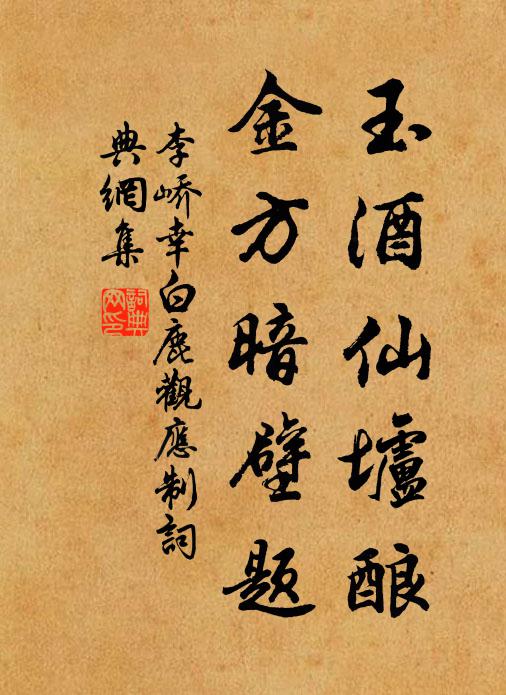 玉酒仙壚酿
金方暗壁题
李嶠幸白鹿觀應制詞
典網集
詞典
网印